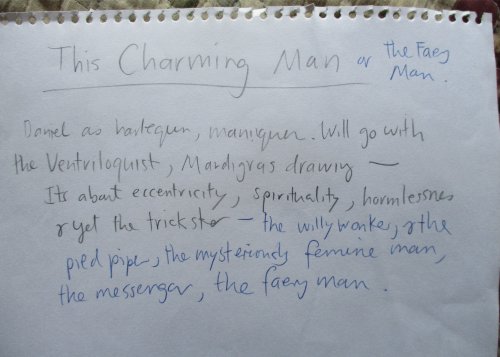 This Charming Man or the Faery
Man.
Daniel as harlequin, maniquen. Will go with
the Ventriloquist, Mardigras drawing —
Its about eccentricity, spirituality, harmlessness
& yet the trickster — the willy wonker, & the
pied piper, the mysteriously feminine man,
the messenger, the faery man.